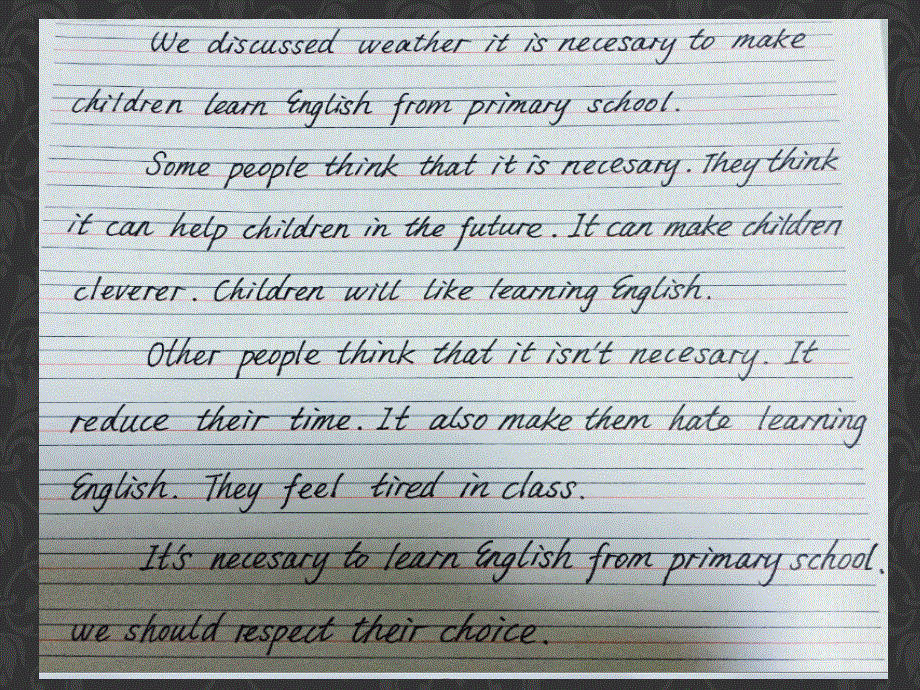 We discussed weather it is necesary to make
children learn English from primary school.
Some people think that it is necesary. They think
it can help children in the future. It can make children
cleverer. Children will like learning English.
Other people think that it isn't necesary. It
reduce their time. It also make them hate learning
English. They feel tired in class.
It's necesary to learn English from primary school.
we should respect their choice.